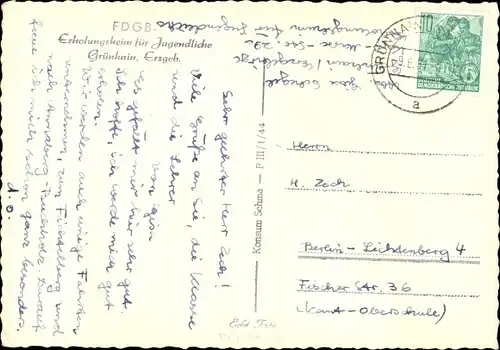 FDGB-
Erholungsheim für Jugendliche
Grünhain, Erzgeb.
Sehr geehrter Herr Zech!
Viele Grüße an Sie, die Klasse
und die Lehrer
von Gisa
Es gefällt mir hier sehr gut.
Ich hoffe, ich werde mich gut
erholen.
Wir werden auch einige Fahrten
unternehmen, zum Fichtelberg und
nach Annaberg-Buchholz. Darauf
freue ich mich schon ganz besonders.
d. O.
Abs.
Grünhain / Erzgebirge
für Jugendliche
Konsum Schma - P III/1/44
Echt Foto
GRÜNHAIN
a
10
DEUTSCHE DEMOKRATISCHE REPUBLIK
Herrn
H. Zech
Berlin-Lichtenberg 4
Fischer Str. 36
(Kant-Oberschule)